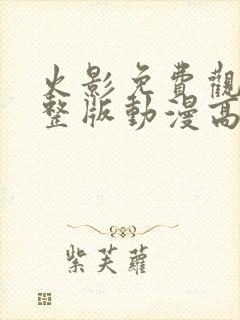 火影免費觀
整版動漫高
紫芙蘿